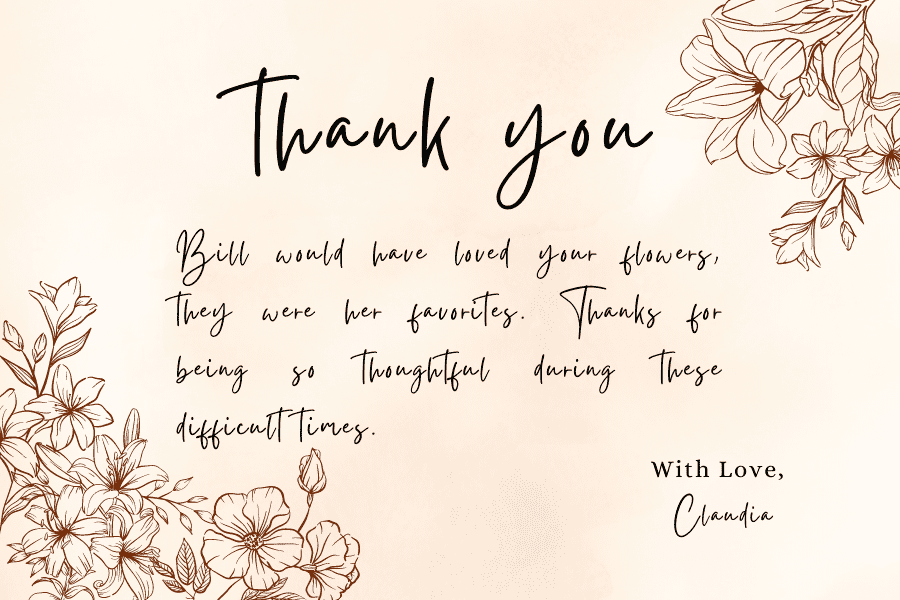 Thank you
Bill would have loved your flowers,
they were her favorites. Thanks for
being so thoughtful during these
difficult times.
With Love,
Claudia